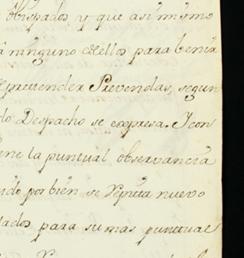 obispados y que asi mismo
á ninguno dellos para benir
pretender Prevendas, segun
do Despacho se expresa. I con
ene la puntual observancia
ende por bien se repita nuevo
lados para su mas puntual